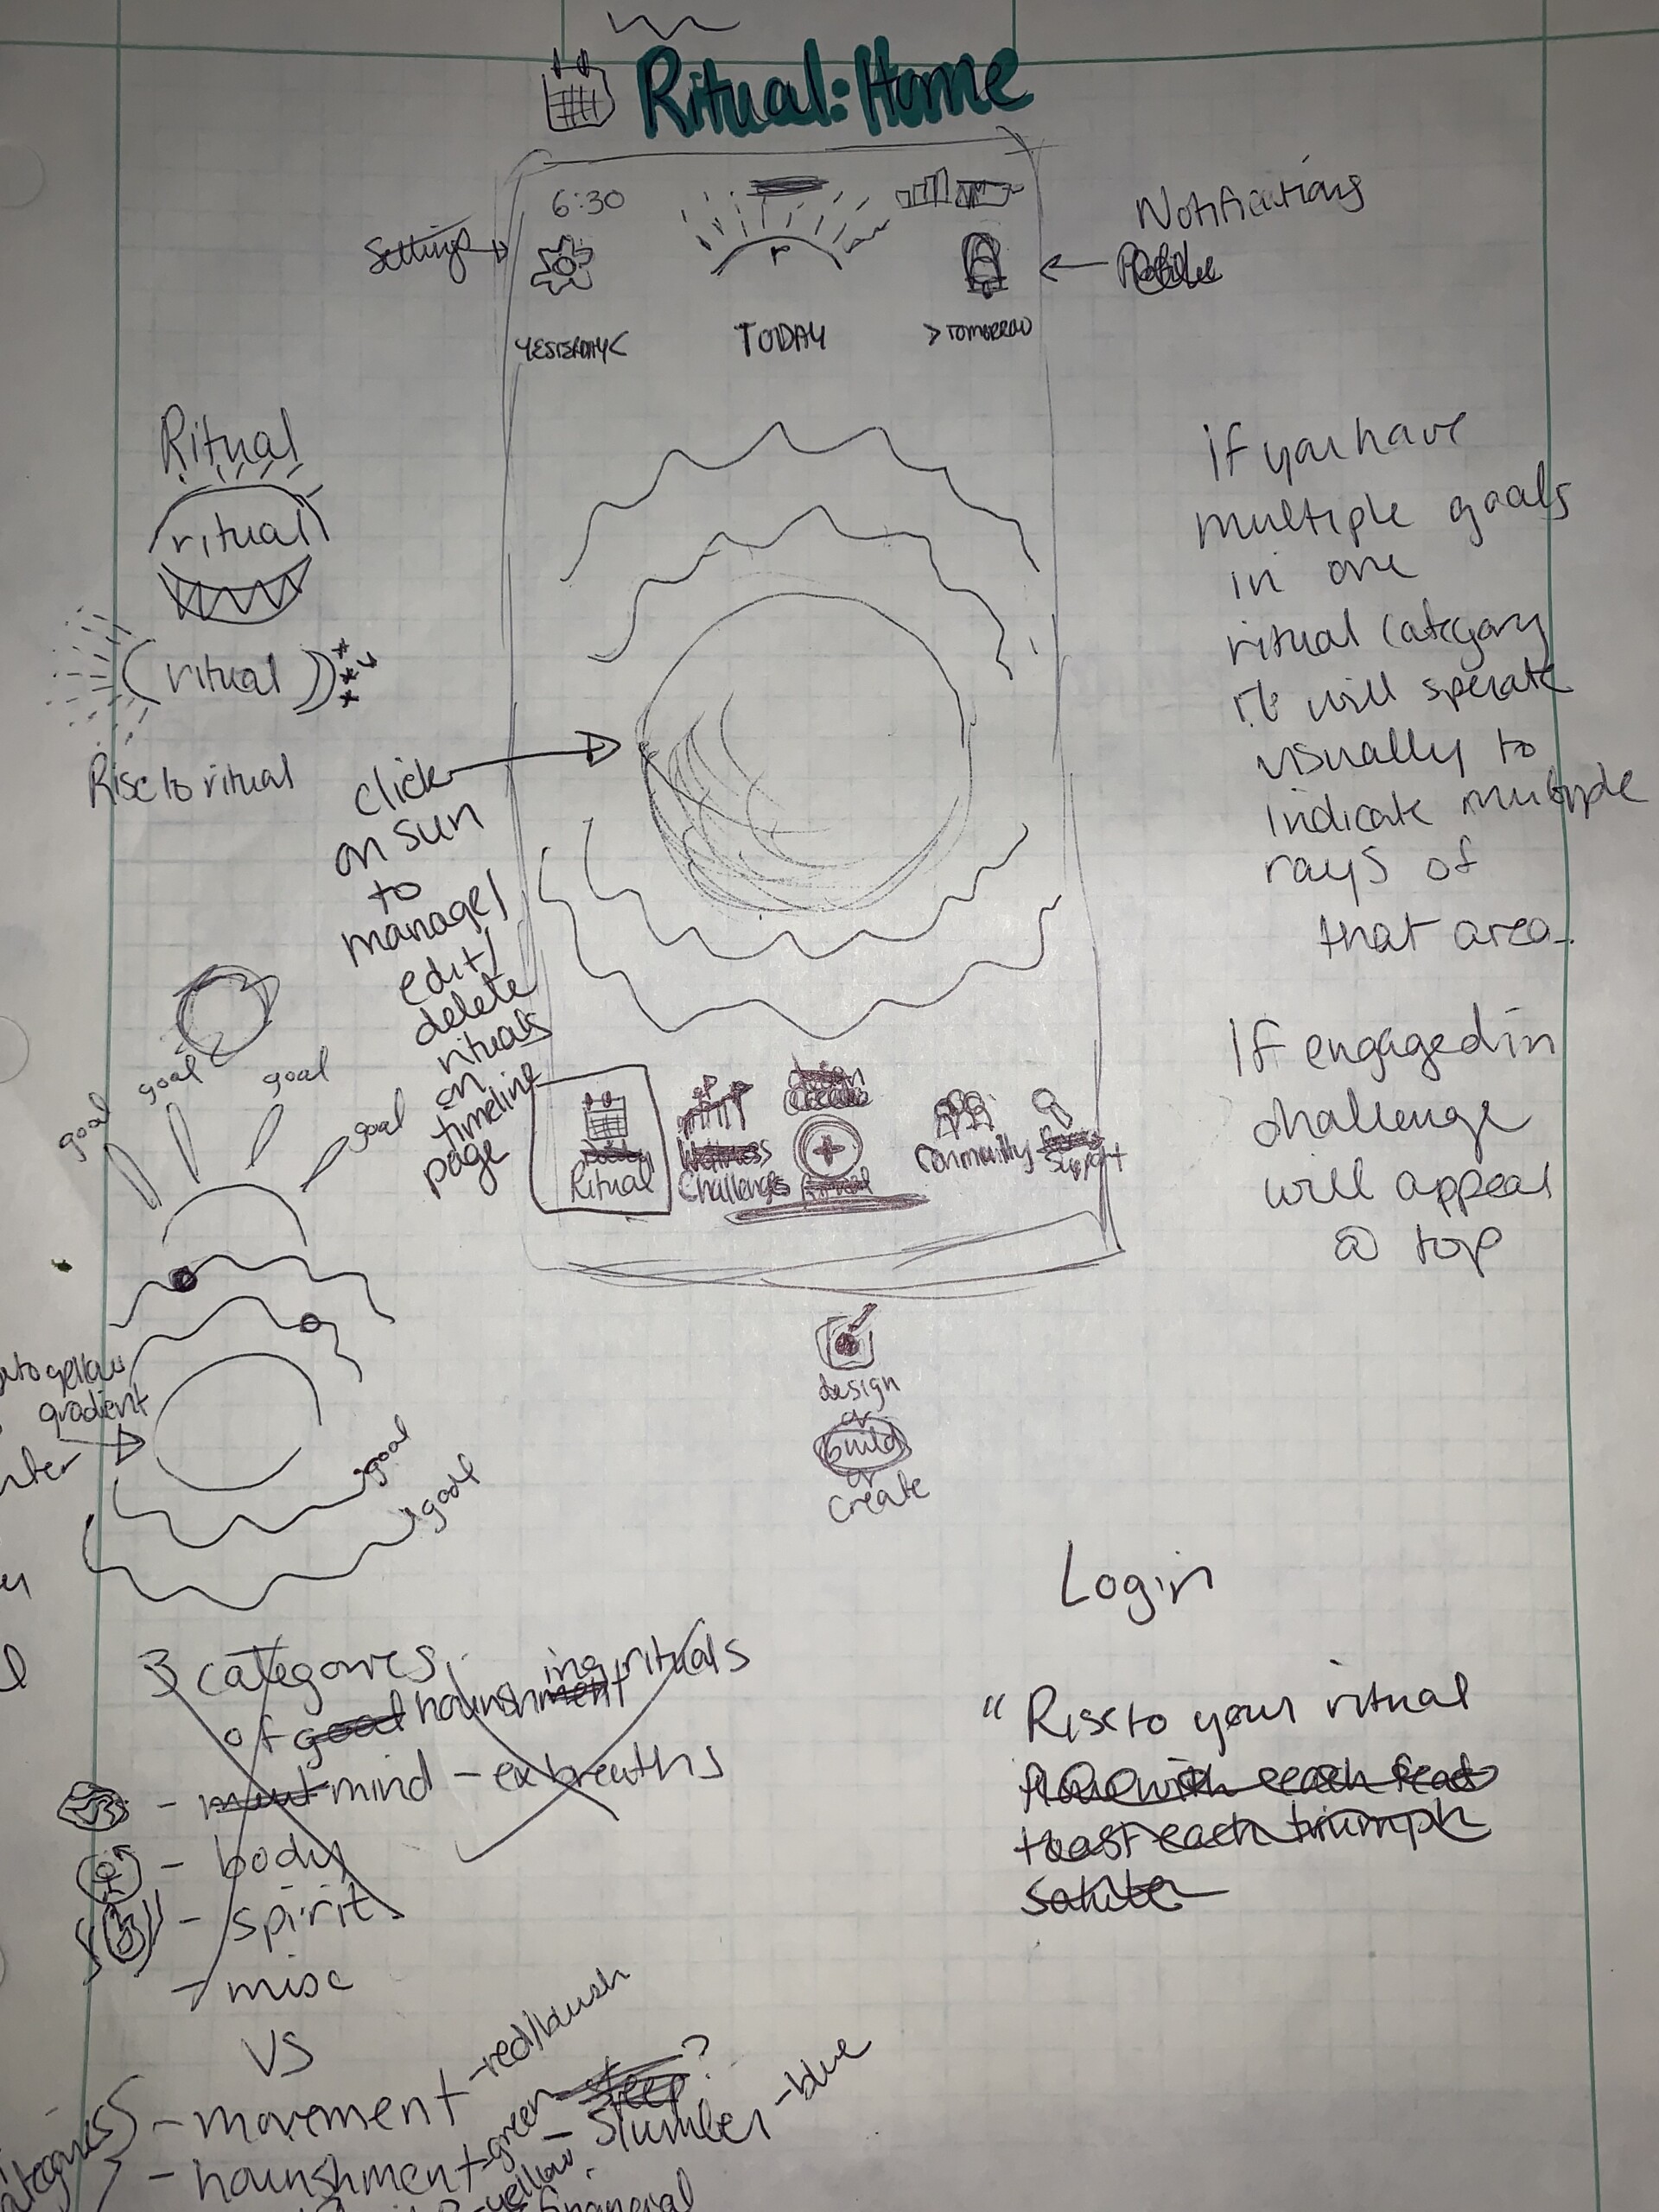 Ritual: Home
6:30
Settings
Notifications
YESTERDAY <
TODAY
> TOMORROW
r
Ritual
ritual
ritual
Rise to ritual
click
on sun
to
manage/
edit/
delete
rituals
on
timeline
page
If you have
multiple goals
in one
ritual category
it will sperate
visually to
indicate multiple
rays of
that area.
If engaged in
challenge
will appear
@ top
goal
goal
goal
goal
design
create
Ritual
Wellness
Challenges
Community
Support
design
or
build
or
create
yellow
gradient
goal
goal
Login
"Rise to your ritual
with each feat
toast each triumph
3 categories
of good nourishment ing rituals
- mind - ex breaths
- body
- spirit
- misc
VS
- movement - red/blush
- nourishment - green
- sleep?
- Slumber - blue
yellow
financial